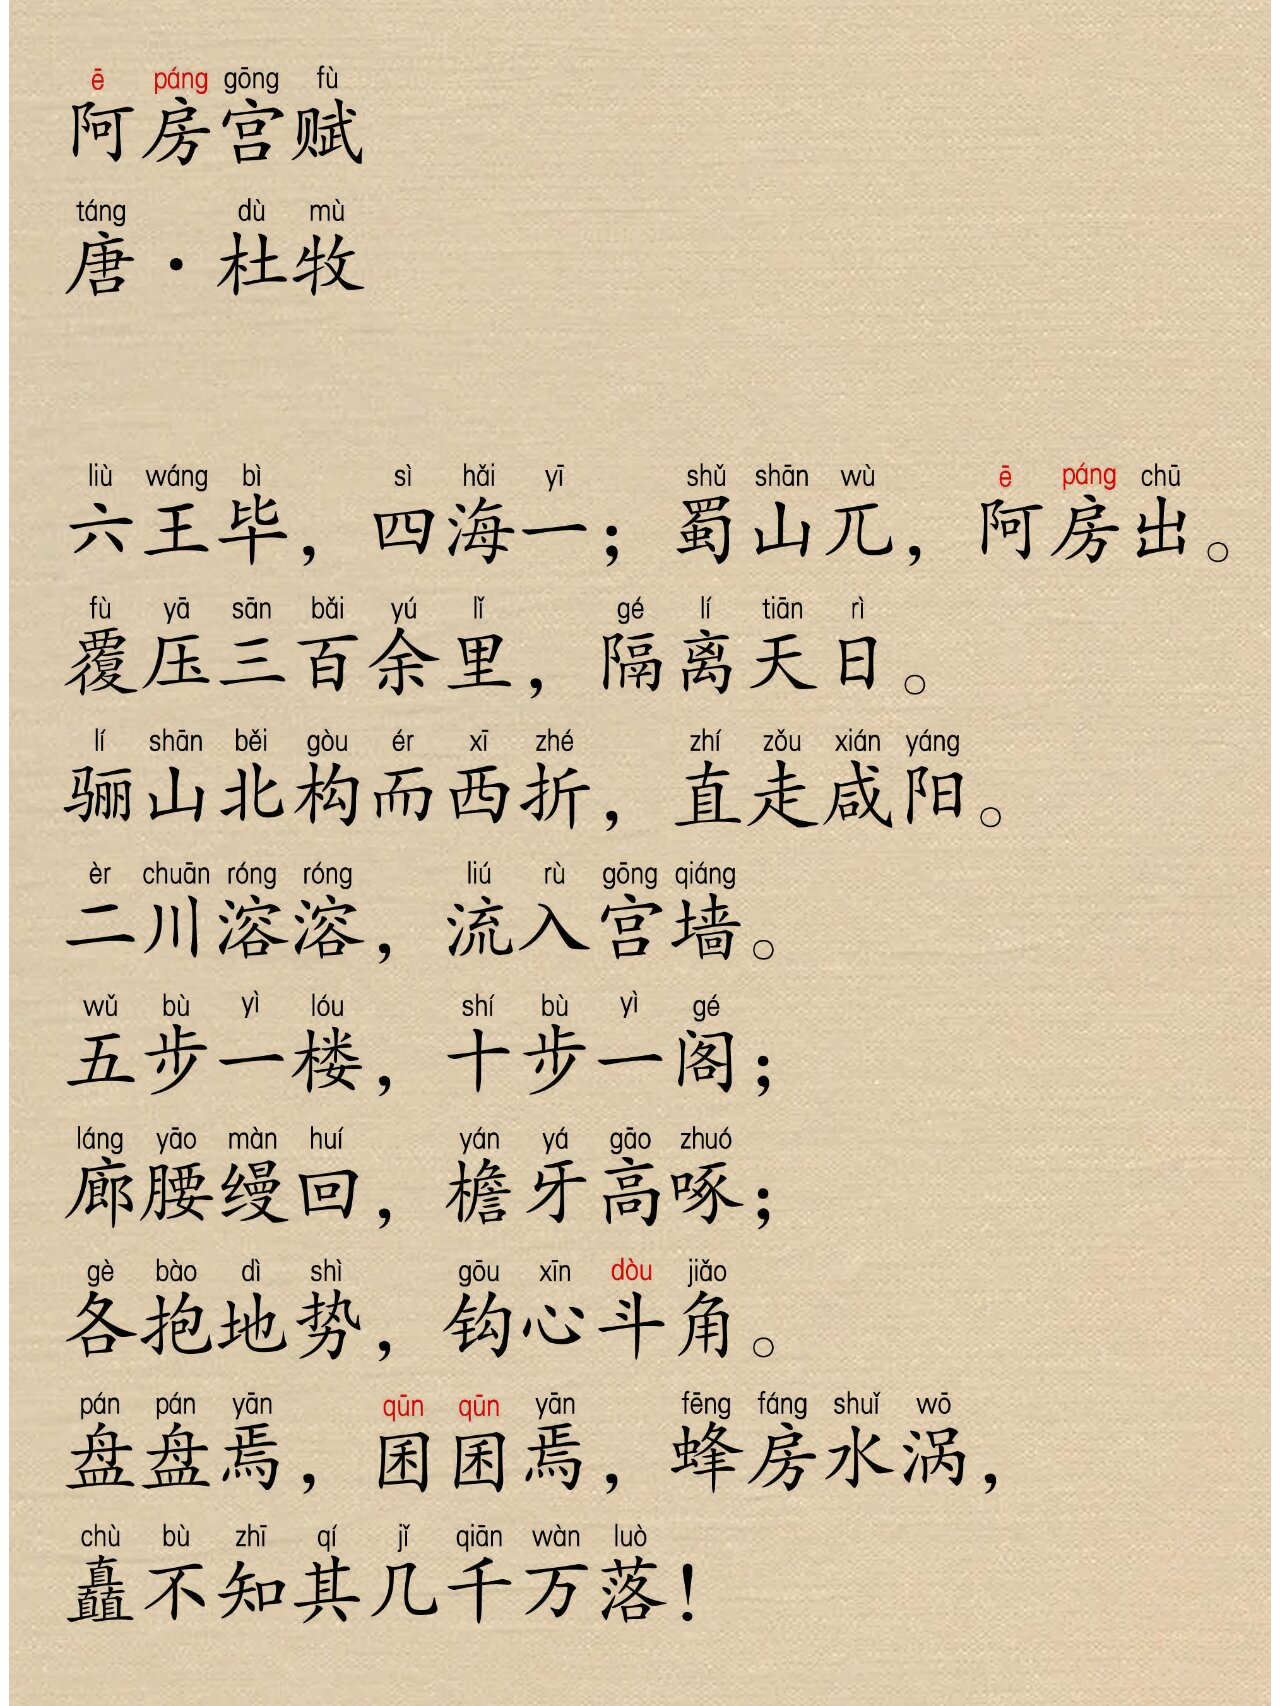 ē páng gōng fù
阿房宫赋
táng dù mù
唐·杜牧
liù wáng bì sì hǎi yī shǔ shān wù ē páng chū
六王毕，四海一；蜀山兀，阿房出。
fù yā sān bǎi yú lǐ gé lí tiān rì
覆压三百余里，隔离天日。
lí shān běi gòu ér xī zhé zhí zǒu xián yáng
骊山北构而西折，直走咸阳。
èr chuān róng róng liú rù gōng qiáng
二川溶溶，流入宫墙。
wǔ bù yì lóu shí bù yì gé
五步一楼，十步一阁；
láng yāo màn huí yán yá gāo zhuó
廊腰缦回，檐牙高啄；
gè bào dì shì gōu xīn dòu jiǎo
各抱地势，钩心斗角。
pán pán yān qūn qūn yān fēng fáng shuǐ wō
盘盘焉，囷囷焉，蜂房水涡，
chù bù zhī qí jǐ qiān wàn luò
矗不知其几千万落！